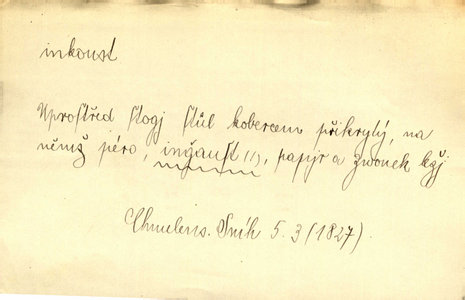 inkoust
Uprostřed stogj stůl kobercem přikrytý, na
němž péro, inğaust 11), papjr a zwonek ležj
Chmelens. Sník 5. 3 (1827).